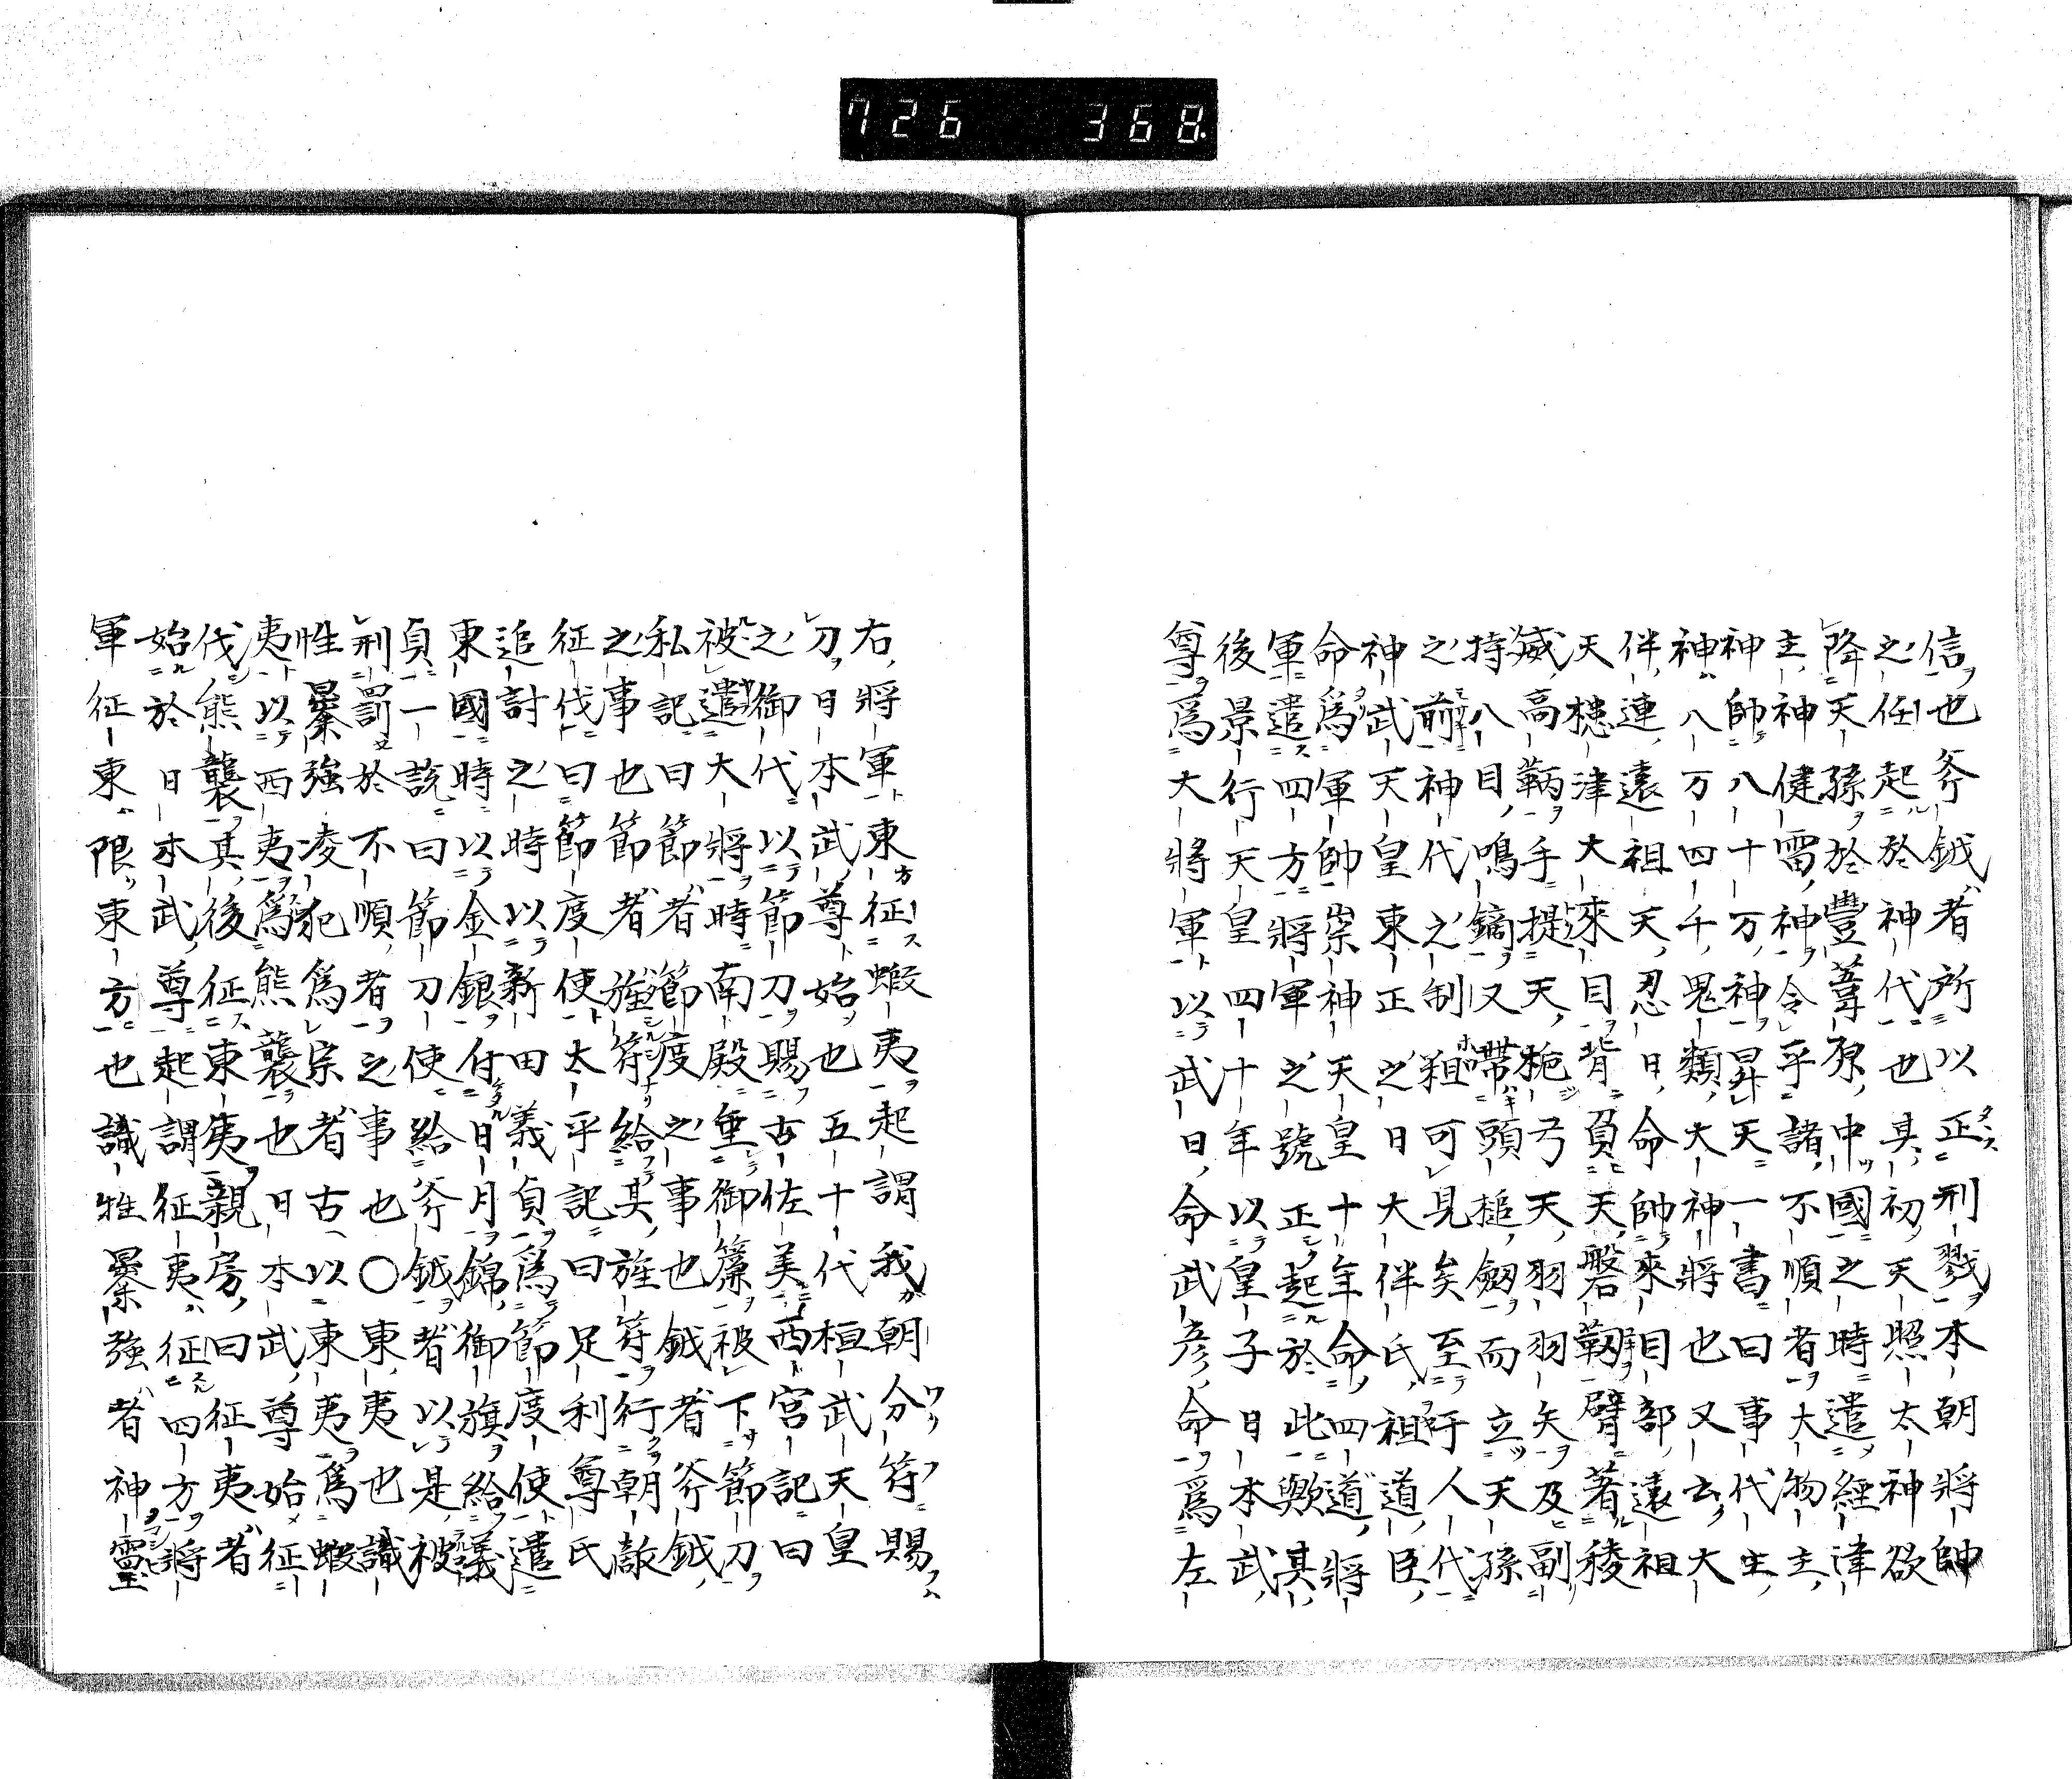 726 368
信也斧鉞者所以正刑戮本朝將帥
之任起於神代也其初天照太神欲
降天孫於豐葦原中國之時遣經津
主神健雷神令平諸不順者大物主
神帥八十万神昇天一書曰事代主
神八万四千鬼類大神將也又云大
伴連遠祖天忍日命帥來目部遠祖
天槵津大來目背負天磐靫臂著稜
威高鞆手提天梔弓天羽羽矢及副
持八目鳴鏑又帶頭槌劔而立天孫
之前神代之制粗可見矣至于人代
神武天皇東正之日大伴氏祖道臣
命爲軍帥崇神天皇十年命四道將
軍遣四方將軍之號正起於此歟其
後景行天皇四十年以皇子日本武
尊爲大將軍以武日命武彦命爲左
右將軍東征蝦夷起謂我朝分符賜
刀日本武尊始也五十代桓武天皇
之御代以節刀賜古佐美西宮記曰
被遣大將時南殿垂御簾被下節刀
私記曰節者節度之事也鉞者斧鉞
之事也節者旌符給其旌符行朝敵
征伐曰節度使太平記曰足利尊氏
追討之時以新田義貞爲節度使遣
東國時以金銀付日月錦御旗給議
貞一說曰節刀使給斧鉞者以是被
刑罰於不順者之事也〇東夷也識
性暴強凌犯爲宗者古以東夷爲蝦
夷以西夷爲熊襲也日本武尊始征
伐熊襲其後征東夷親房曰征夷者
始於日本武尊起謂征夷征四方將
軍征東限東方也識性暴強者神靈